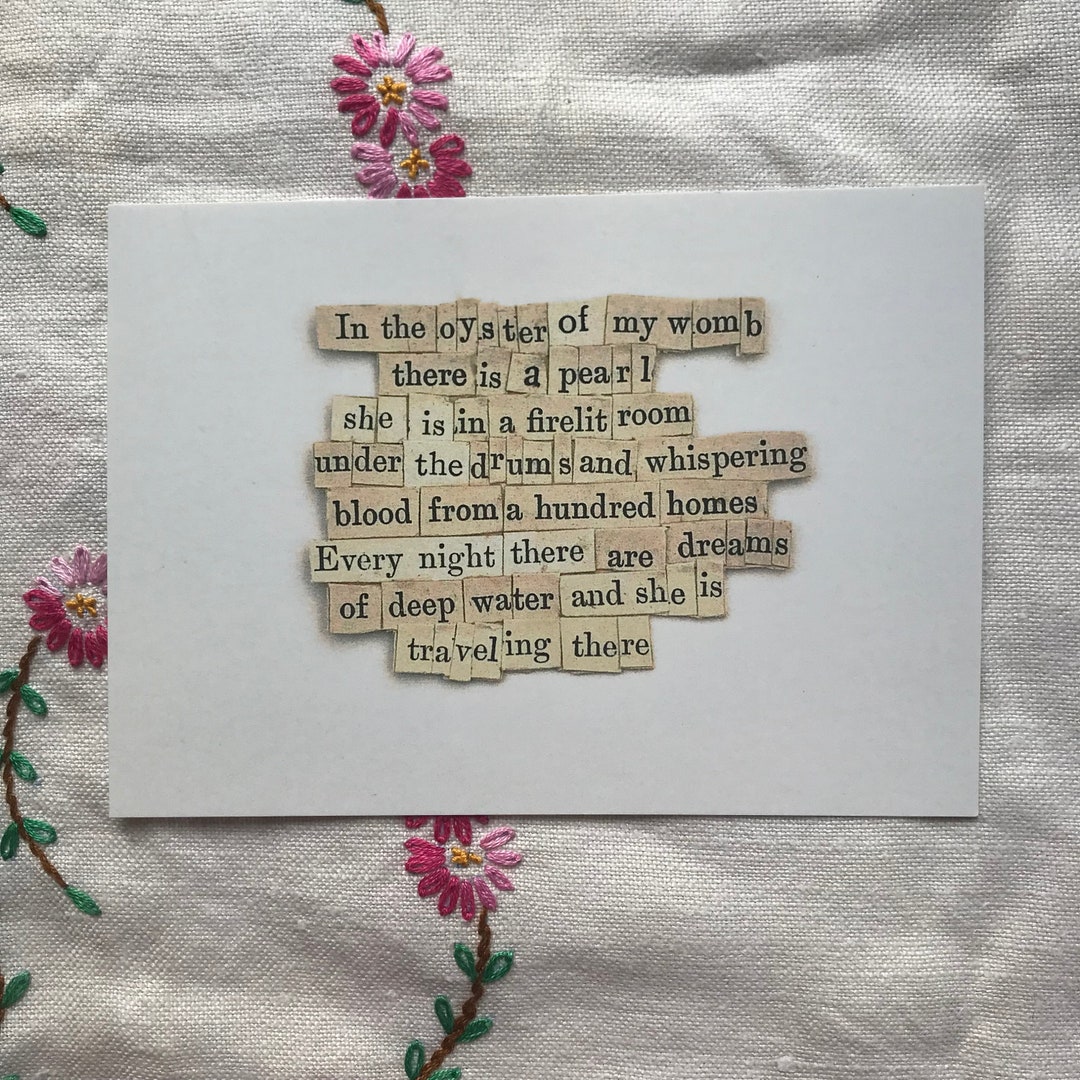 In the oyster of my womb
there is a pearl
she is in a firelit room
under the drums and whispering
blood from a hundred homes
Every night there are dreams
of deep water and she is
traveling there